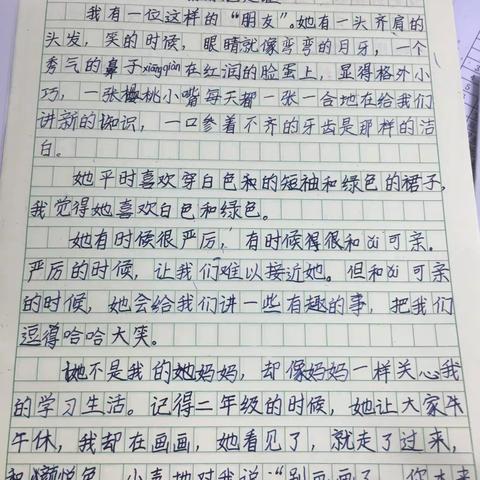 我有一位这样的“朋友”。她有一头齐肩的
头发，笑的时候，眼睛就像弯弯的月牙，一个
秀气的鼻子xiāngqiàn在红润的脸蛋上，显得格外小
巧，一张樱桃小嘴每天都一张一合地在给我们
讲新的知识，一口参着不齐的牙齿是那样的洁
白。
她平时喜欢穿白色和的短袖和绿色的裙子，
我觉得她喜欢白色和绿色。
她有时候很严厉，有时候得很和ǎi可亲。
严厉的时候，让我们难以接近她。但和ǎi可亲
的时候，她会给我们讲一些有趣的事，把我们
逗得哈哈大笑。
她不是我的她妈妈，却像妈妈一样关心我
的学习生活。记得二年级的时候，她让大家午
午休，我却在画画，她看见了，就走了过来，
和颜悦色，小声地对我说：“别画画了，你本来